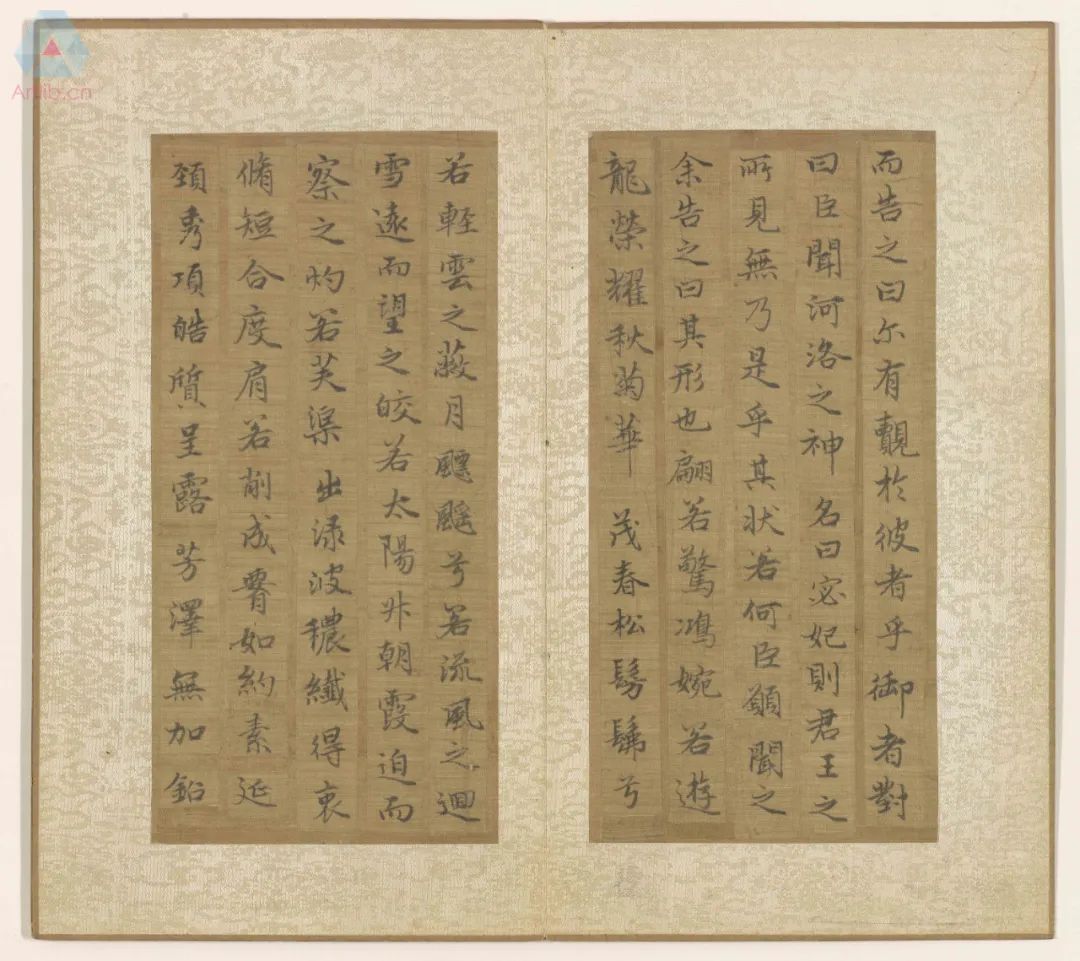 而告之曰尒有觀於彼者乎御者對
曰臣聞河洛之神名曰宓妃則君王之
所見無乃是乎其状若何臣願聞之
余告之曰其形也翩若驚鴻婉若遊
龍榮耀秋菊華茂春松髣髴兮
若輕雲之蔽月飄颻兮若流風之迴
雪遠而望之皎若太陽升朝霞迫而
察之灼若芙渠出渌波穠纖得衷
脩短合度肩若削成腰如約素延
頚秀項皓質呈露芳澤無加鉛
Artlib.cn